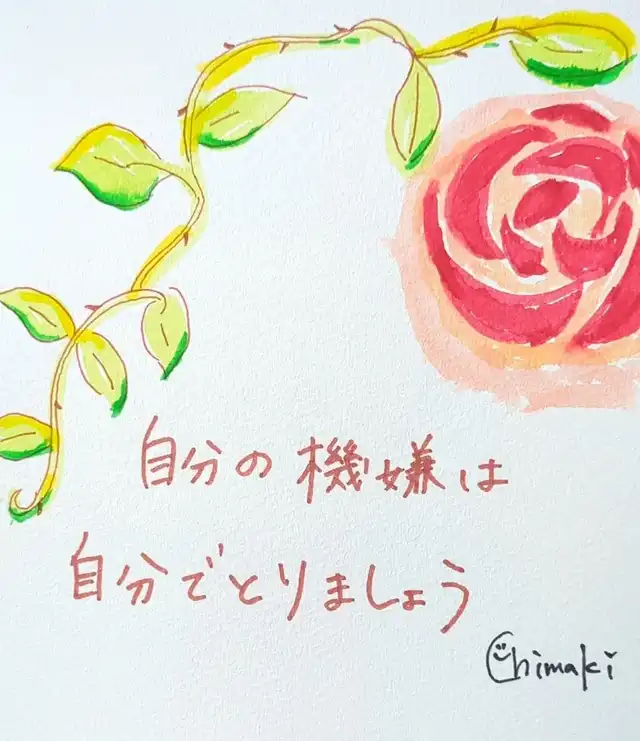 自分の機嫌は
自分でとりましょう
Chimaki